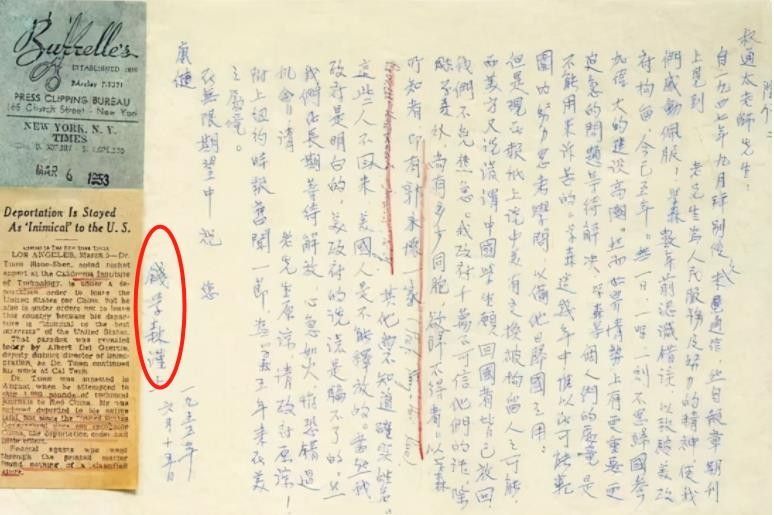 Burrelle's
ESTABLISHED 1888
BArclay 7-5371
PRESS CLIPPING BUREAU
165 Church Street - New York
NEW YORK, N. Y.
TIMES
MAR 6 1953
Deportation Is Stayed
As 'Inimical' to the U. S.
LOS ANGELES, March 5—Dr.
Tsuen Hsue-Shen, noted rocket
expert at the California Institute
of Technology, is under a de-
portation order to leave the
United States for China, but he
also is under orders not to leave
this country because his depar-
ture is "inimical to the best
interests" of the United States.
That paradox was revealed
today by Albert Del Guercio,
deputy district director of immi-
gration, as Dr. Tsuen continued
his work at Cal Tech.
Dr. Tsuen was arrested in
August when he attempted to
ship 1,800 pounds of technical
journals to Red China. He was
ordered deported to his native
China, the deportation order
Federal agents who went
through the printed matter
found nothing of a classified
叔通太老師先生：
自一九四七年九月拜別後未曾通信，然自報章期刊
上見到老先生為人民服務及努力的精神，使我
們感動佩服！學森數年前認識錯誤，以致被美政
府拘留，今已五年。無一日、一時、一刻不思歸國參
加偉大的建設高潮。然而世界情勢上有更重要更
迫急的問題等待解決，學森等個人們的處境是
不能用來訴苦的。學森這幾年中惟以在可能範
圍內努力思考學問，以備他日歸國之用。
但是現在報紙上說中美有交換被拘留人之可能，
而美方又說謊謂中國學生願意回國者皆已放回，
我們不免焦急。我政府千萬不可信他們的話，除
學森外，尚有多少同胞，欲歸不得者。以學森
所知者，即有郭永懷一家
其他尚不知道確實姓名。
這些人不回來，美國人是不能釋放的。當然我
政府是明白的，美政府的說謊是騙不了的。然
我們在長期等待解放，心急如火，惟恐錯過
機會，請老先生原諒，請政府原諒！
附上紐約時報舊聞一節，為學森五年來在美
之處境。
在無限期望中祝您
康健
錢學森謹上
一九五五年
六月十五日